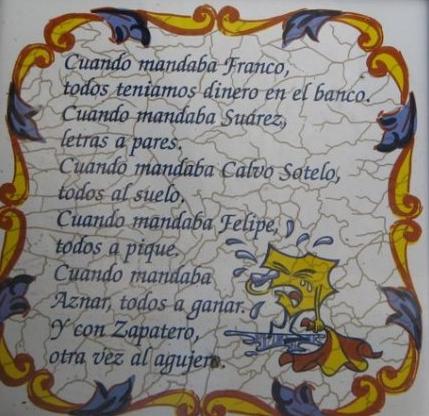 Cuando mandaba Franco,
todos teniamos dinero en el banco.
Cuando mandaba Suárez,
letras a pares.
Cuando mandaba Calvo Sotelo,
todos al suelo.
Cuando mandaba Felipe,
todos a pique.
Cuando mandaba
Aznar, todos a ganar.
Y con Zapatero,
otra vez al agujero.